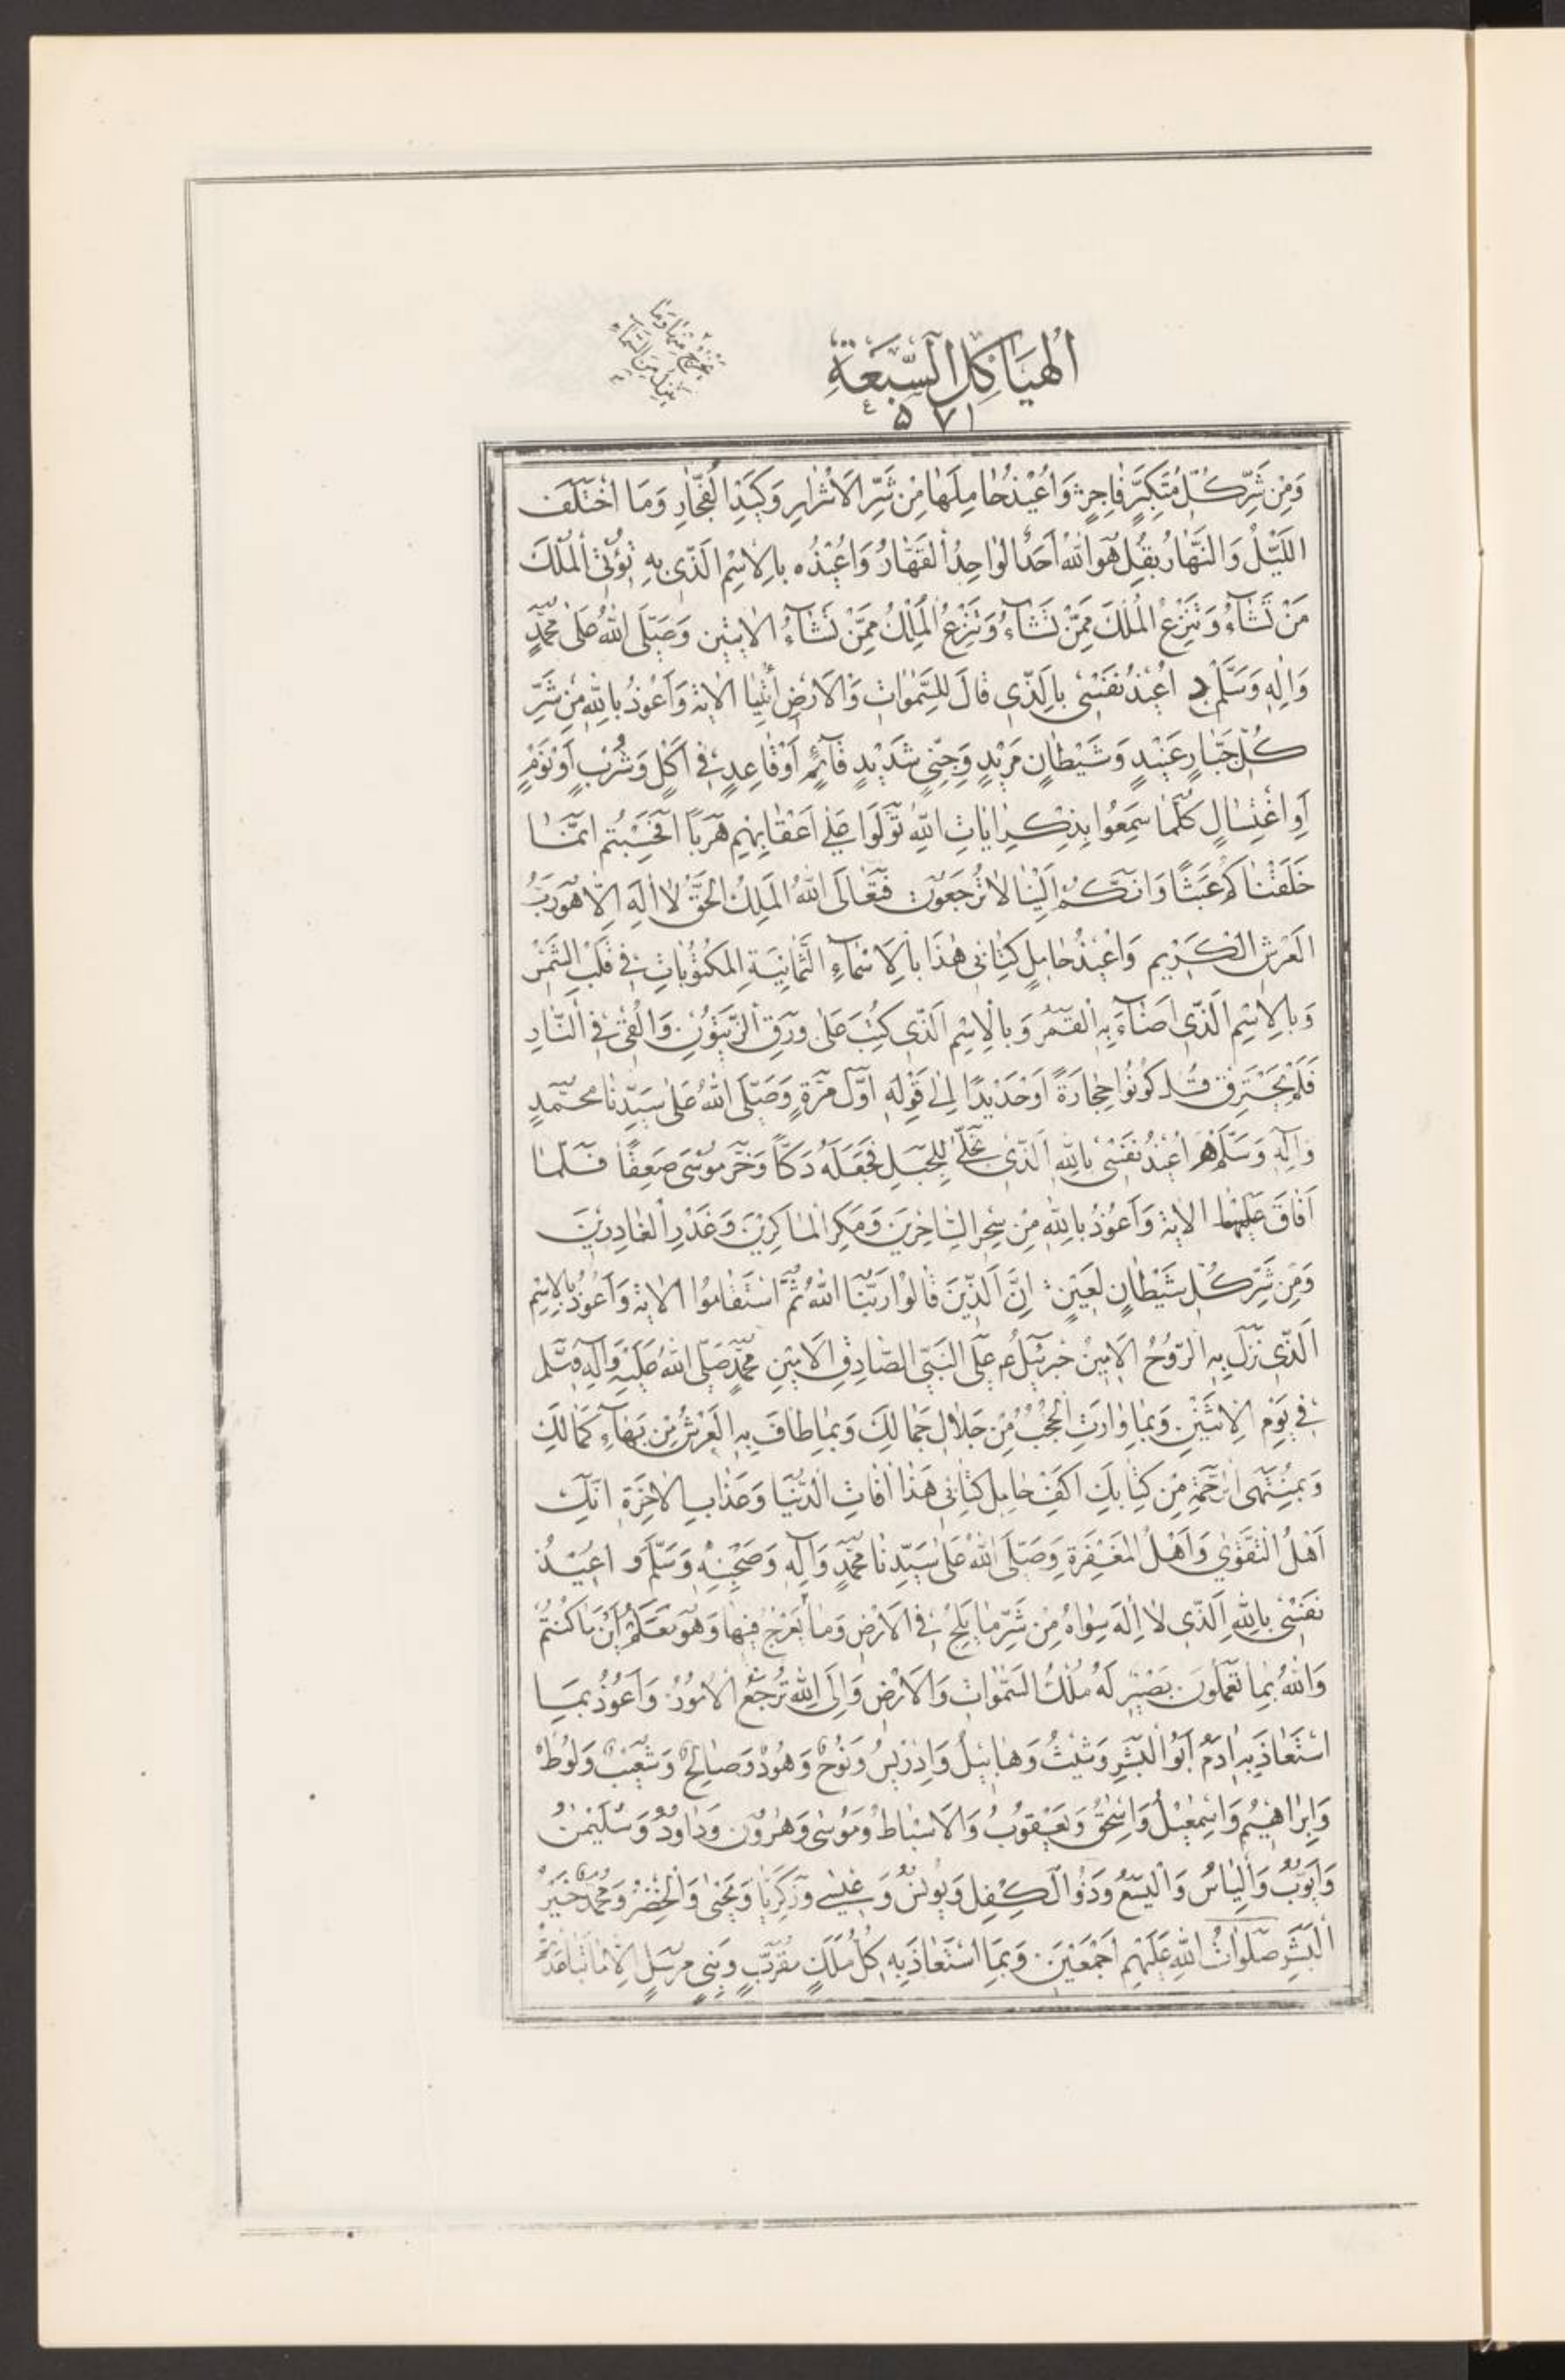 الهياكل السبعة
٥٧١
يخرج منها وما
ينزل من السماء
وَمِنْ شَرِّ كُلِّ مُتَكَبِّرٍ فَاجِرٍ وَاُعِيْذُ حَامِلَهَا مِنْ شَرِّ الْاَشْرَارِ وَكَيْدِ الْفُجَّارِ وَمَا اخْتَلَفَ
اللَّيْلُ وَالنَّهَارُ بِقُلْ هُوَ اللهُ اَحَدٌ الْوَاحِدُ الْقَهَّارُ وَاُعِيْذُه بِالْاِسْمِ الَّذِى بِهِ تُؤْتِى الْمُلْكَ
مَنْ تَشَآءُ وَتَنْزِعُ الْمُلْكَ مِمَّنْ تَشَآءُ وَتَنْزِعُ الْمُلْكَ مِمَّنْ تَشَآءُ الْايتين وَصَلَّى اللهُ عَلٰى مُحَمَّدٍ
وَاٰلِهِ وَسَلَّمَ د اُعِيْذُ نَفْسِىْ بِالَّذِى قَالَ لِلسَّمٰوَاتِ وَالْاَرْضِ اُئْتِيَا الْاية وَاَعُوْذُ بِاللهِ مِنْ شَرِّ
كُلِّ جَبَّارٍ عَنِيْدٍ وَشَيْطَانٍ مَرِيْدٍ وَجِنِّىٍ شَدِيْدٍ قَآئِمٍ اَوْ قَاعِدٍ فِى اَكْلٍ وَشُرْبٍ اَوْ نَوْمٍ
اَوِ اغْتِسَالٍ كُلَّمَا سَمِعُوا بِذِكْرِ اٰيَاتِ اللهِ تَوَلَّوْا عَلٰى اَعْقَابِهِمْ هَرَبًا اَفَحَسِبْتُمْ اَنَّمَا
خَلَقْنَاكُمْ عَبَثًا وَاَنَّكُمْ اِلَيْنَا لَا تُرْجَعُوْنَ فَتَعَالَى اللهُ الْمَلِكُ الْحَقُّ لَا اِلٰهَ اِلَّا هُوَ رَبُّ
الْعَرْشِ الْكَرِيْمِ وَاُعِيْذُ حَامِلَ كِتَابِى هٰذَا بِالْاَسْمَآءِ الثَّمَانِيَةِ الْمَكْتُوْبَاتِ فِى قَلْبِ الشَّمْسِ
وَبِالْاِسْمِ الَّذِى اَضَآءَ بِهِ الْقَمَرُ وَبِالْاِسْمِ الَّذِى كُتِبَ عَلٰى وَرَقِ الزَّيْتُوْنِ وَاُلْقِىَ فِى النَّارِ
فَلَمْ يَحْتَرِقْ قُلْ كُوْنُوْا حِجَارَةً اَوْ حَدِيْدًا اِلٰى قَوْلِهِ اَوَّلَ مَرَّةٍ وَصَلَّى اللهُ عَلٰى سَيِّدِنَا مُحَمَّدٍ
وَاٰلِهِ وَسَلَّمَ ه اُعِيْذُ نَفْسِىْ بِاللهِ الَّذِى تَجَلّٰى لِلْجَبَلِ فَجَعَلَهُ دَكًّا وَخَرَّ مُوْسٰى صَعِقًا فَلَمَّا
اَفَاقَ الْاية وَاَعُوْذُ بِاللهِ مِنْ سِحْرِ السَّاحِرِيْنَ وَمَكْرِ الْمَاكِرِيْنَ وَغَدْرِ الْغَادِرِيْنَ
وَمِنْ شَرِّ كُلِّ شَيْطَانٍ لَعِيْنٍ اِنَّ الَّذِيْنَ قَالُوْا رَبُّنَا اللهُ ثُمَّ اسْتَقَامُوْا الْاية وَاَعُوْذُ بِالْاِسْمِ
الَّذِى نَزَلَ بِهِ الرُّوْحُ الْاَمِيْنُ جبرئيل عم عَلَى النَّبِىِّ الصَّادِقِ الْاَمِيْنِ مُحَمَّدٍ صَلَّى اللهُ عَلَيْهِ وَاٰلِهِ وَسَلَّم
فِى يَوْمِ الْاِثْنَيْنِ وَبِمَا وَارَتِ الْحُجُبُ مِنْ جَلَالِ جَمَالِكَ وَبِمَا طَافَ بِهِ الْعَرْشُ مِنْ بَهَآءِ كَمَالِكَ
وَبِمُنْتَهَى الرَّحْمَةِ مِنْ كِتَابِكَ اكْفِ حَامِلَ كِتَابِى هٰذَا اٰفَاتِ الدُّنْيَا وَعَذَابِ الْاٰخِرَةِ اِنَّكَ
اَهْلُ التَّقْوٰى وَاَهْلُ الْمَغْفِرَةِ وَصَلَّى اللهُ عَلٰى سَيِّدِنَا مُحَمَّدٍ وَاٰلِهِ وَصَحْبِهِ وَسَلَّمَ و اُعِيْذُ
نَفْسِىْ بِاللهِ الَّذِى لَا اِلٰهَ سِوَاهُ مِنْ شَرِّ مَا يَلِجُ فِى الْاَرْضِ وَمَا يَعْرُجُ فِيْهَا وَهُوَ مَعَكُمْ اَيْنَ مَا كُنْتُمْ
وَاللهُ بِمَا تَعْمَلُوْنَ بَصِيْرٌ لَهُ مُلْكُ السَّمٰوَاتِ وَالْاَرْضِ وَاِلَى اللهِ تُرْجَعُ الْاُمُوْرُ وَاَعُوْذُ بِمَا
اسْتَعَاذَ بِهِ اٰدَمُ اَبُو الْبَشَرِ وَشِيْثُ وَهَابِيْلُ وَاِدْرِيْسُ وَنُوْحٌ وَهُوْدٌ وَصَالِحٌ وَشُعَيْبٌ وَلُوْطٌ
وَاِبْرَاهِيْمُ وَاِسْمٰعِيْلُ وَاِسْحٰقُ وَيَعْقُوْبُ وَالْاَسْبَاطُ وَمُوْسٰى وَهٰرُوْنُ وَدَاوُدُ وَسُلَيْمٰنُ
وَاَيُّوْبُ وَاِلْيَاسُ وَالْيَسَعُ وَذُو الْكِفْلِ وَيُوْنُسُ وَعِيْسٰى وَزَكَرِيَّا وَيَحْيٰى وَالْخِضْرُ وَمُحَمَّدٌ خَيْرُ
الْبَشَرِ صَلَوَاتُ اللهِ عَلَيْهِمْ اَجْمَعِيْنَ وَبِمَا اسْتَعَاذَ بِهِ كُلُّ مَلَكٍ مُقَرَّبٍ وَنَبِىٍّ مُرْسَلٍ اِلَّا مَا تَبَاعَدْتُمْ